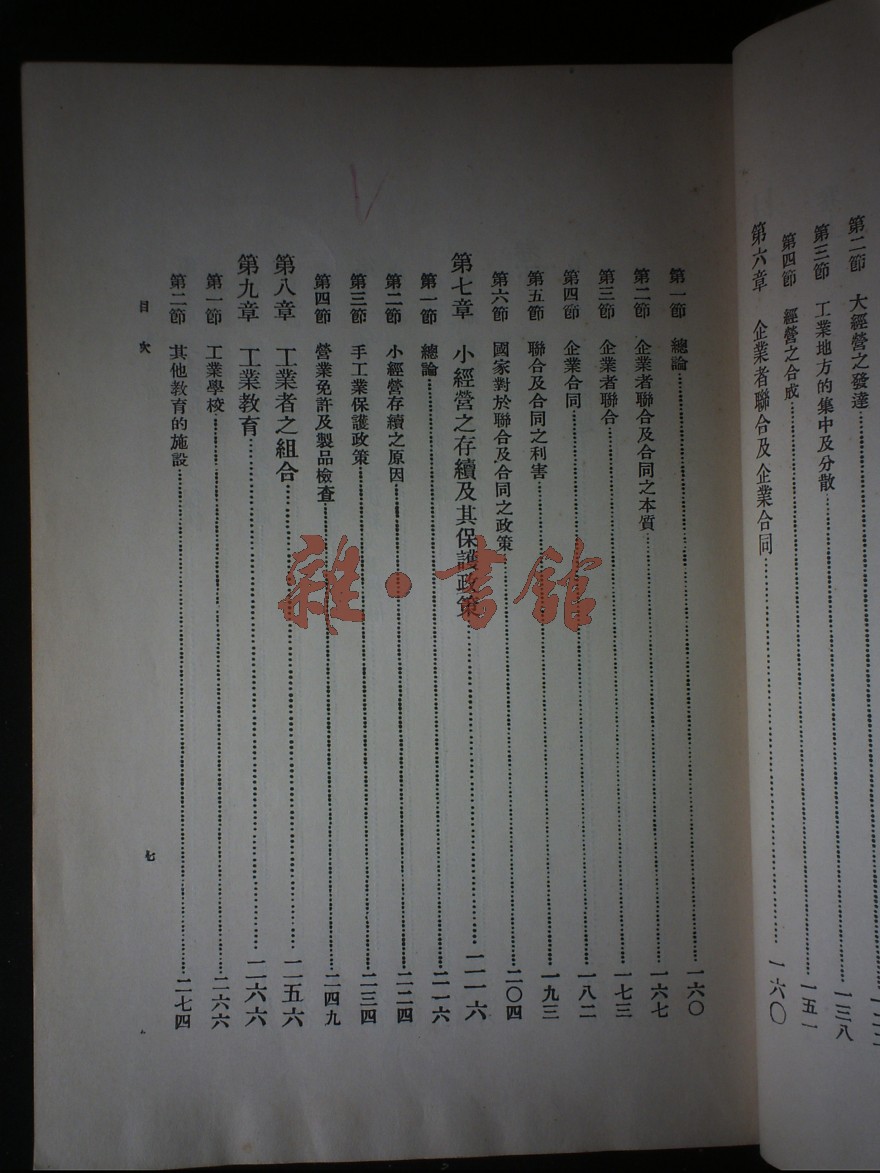 第二節　大經營之發達
第三節　工業地方的集中及分散……一三八
第四節　經營之合成……一五一
第六章　企業者聯合及企業合同……一六〇
第一節　總論……一六〇
第二節　企業者聯合及合同之本質……一六七
第三節　企業者聯合……一七三
第四節　企業合同……一八二
第五節　聯合及合同之利害……一九三
第六節　國家對於聯合及合同之政策……二〇四
第七章　小經營之存續及其保護政策……二一六
第一節　總論……二一六
第二節　小經營存續之原因……二二四
第三節　手工業保護政策……二三四
第四節　營業免許及製品檢查……二四九
第八章　工業者之組合……二五六
第九章　工業教育……二六六
第一節　工業學校……二六六
第二節　其他教育的施設……二七四
目次
七
雜·書館